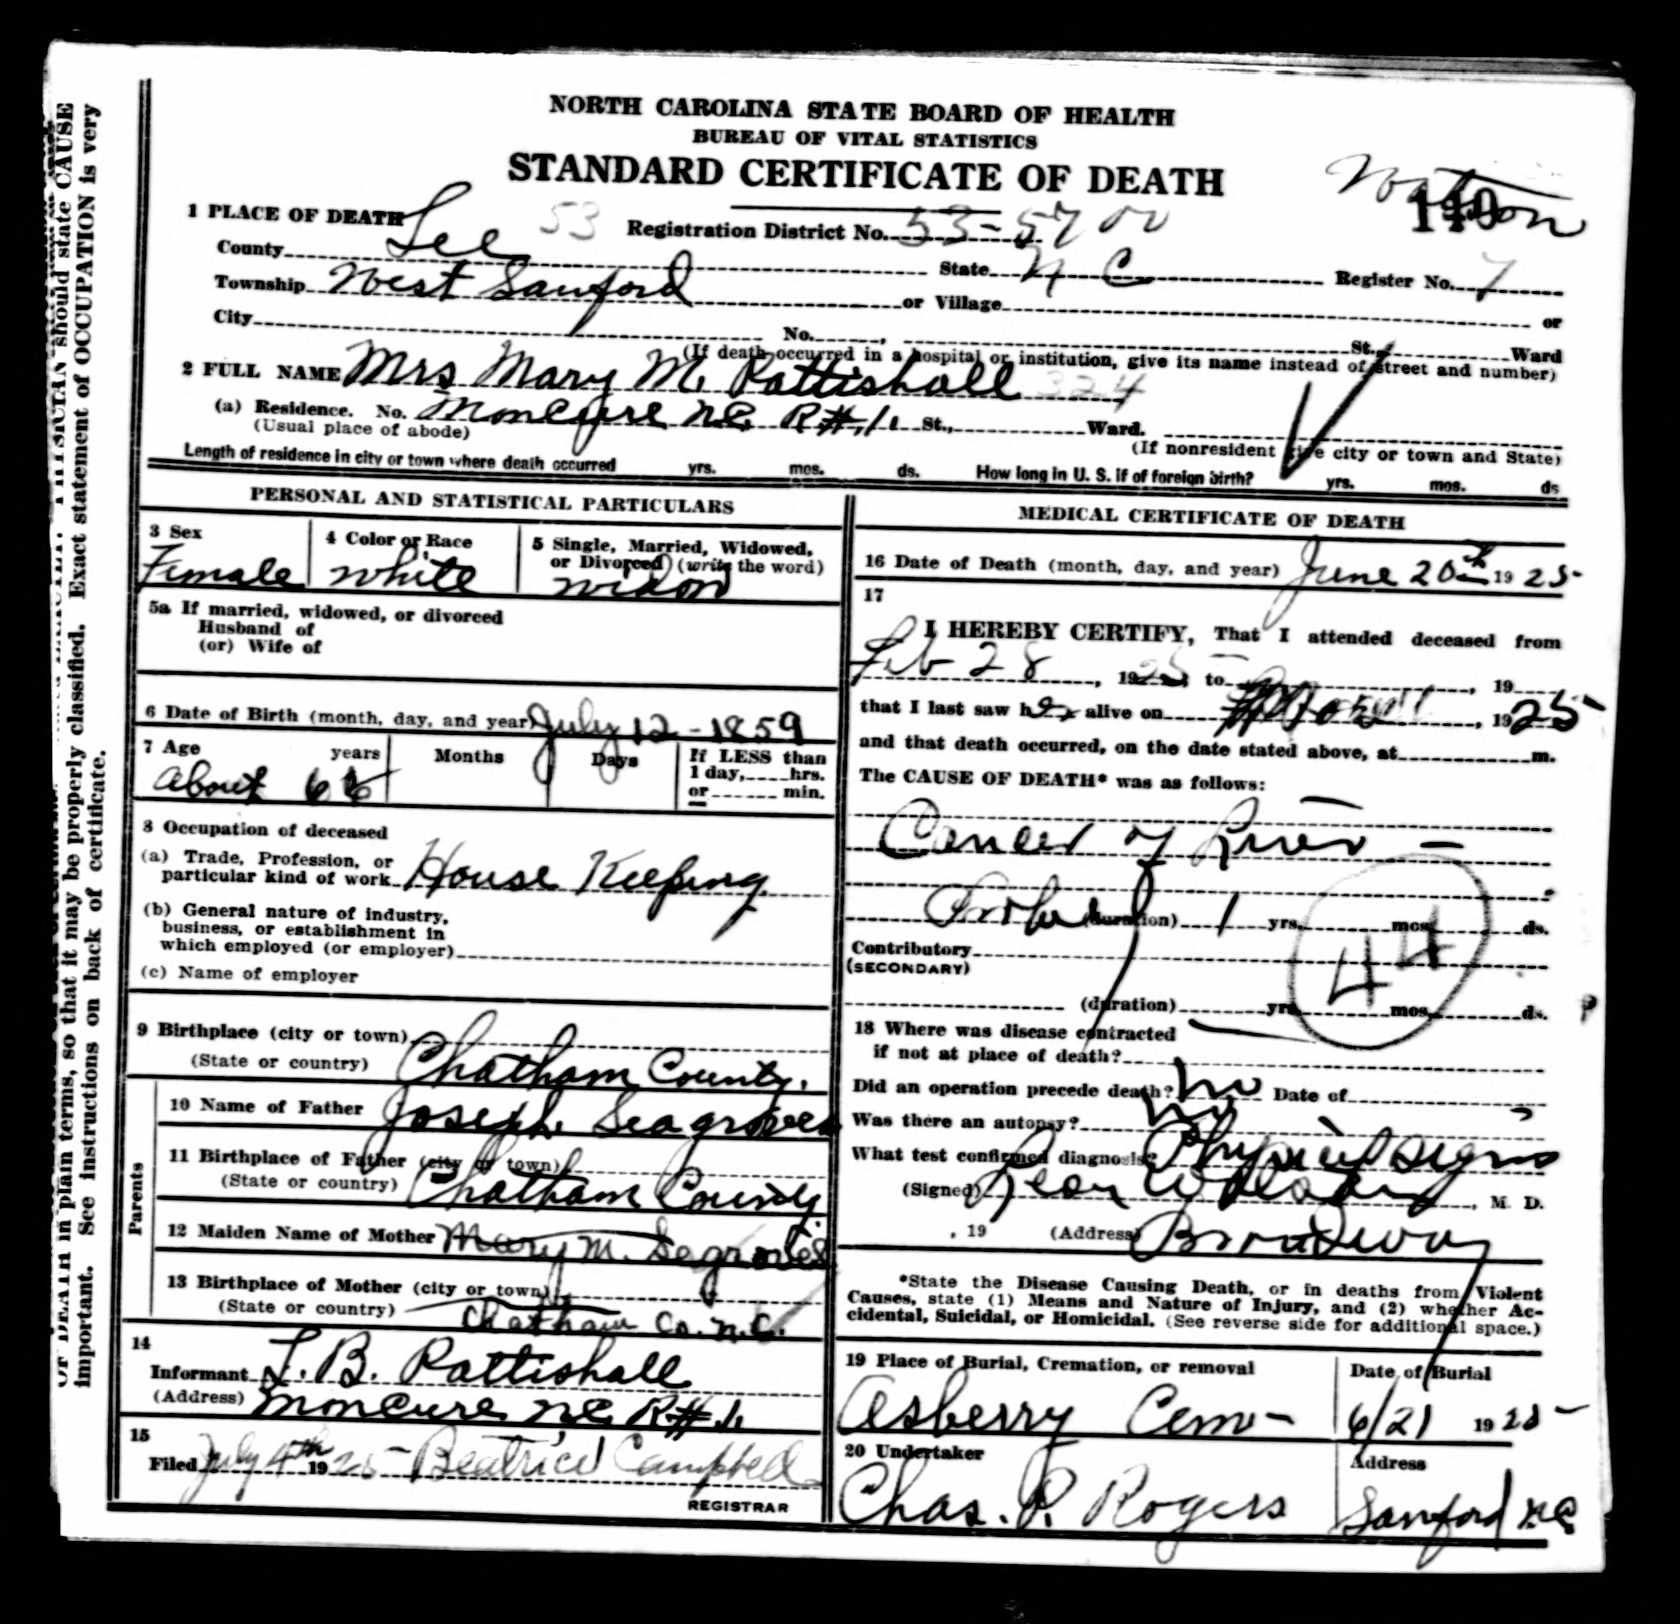 NORTH CAROLINA STATE BOARD OF HEALTH
BUREAU OF VITAL STATISTICS
STANDARD CERTIFICATE OF DEATH
1 PLACE OF DEATH 53 Registration District No. 53-5700
County Lee State N C Register No. 7
Township West Sanford or Village or
City No. , St., Ward
(If death occurred in a hospital or institution, give its name instead of street and number)
2 FULL NAME Mrs Mary M. Pattishall 324
(a) Residence. No. Moncure N.C. R#1. St., Ward.
(Usual place of abode) (If nonresident give city or town and State)
Length of residence in city or town where death occurred yrs. mos. ds. How long in U. S. if of foreign birth? yrs. mos. ds
PERSONAL AND STATISTICAL PARTICULARS
3 Sex
Female
4 Color or Race
White
5 Single, Married, Widowed,
or Divorced (write the word)
Widow
5a If married, widowed, or divorced
Husband of
(or) Wife of
6 Date of Birth (month, day, and year) July 12-1859
7 Age years Months Days If LESS than
1 day, hrs.
or min.
about 66
8 Occupation of deceased
(a) Trade, Profession, or
particular kind of work House Keeping
(b) General nature of industry,
business, or establishment in
which employed (or employer)
(c) Name of employer
9 Birthplace (city or town)
(State or country) Chatham County.
Parents
10 Name of Father Joseph Seagroves
11 Birthplace of Father (city or town)
(State or country) Chatham County
12 Maiden Name of Mother Mary M. Segroves
13 Birthplace of Mother (city or town)
(State or country) Chatham Co. N.C.
14
Informant L. B. Pattishall
(Address) Moncure N.C. R#1.
15
Filed July 4th 1925 Beatrice Campbell
REGISTRAR
MEDICAL CERTIFICATE OF DEATH
16 Date of Death (month, day, and year) June 20th 1925
17
I HEREBY CERTIFY, That I attended deceased from
Feb 28, 1925 to , 19
that I last saw her alive on , 1925
and that death occurred, on the date stated above, at m.
The CAUSE OF DEATH* was as follows:
Cancer of Liver -
(duration) 1 yrs. mos. ds.
44
Contributory
(SECONDARY)
(duration) yrs. mos. ds.
18 Where was disease contracted
if not at place of death?
Did an operation precede death? no Date of
Was there an autopsy? no
What test confirmed diagnosis? Physical signs
(Signed) , M. D.
, 19 (Address) Broadway
*State the Disease Causing Death, or in deaths from Violent
Causes, state (1) Means and Nature of Injury, and (2) whether Ac-
cidental, Suicidal, or Homicidal. (See reverse side for additional space.)
19 Place of Burial, Cremation, or removal
Asberry Cem-
Date of Burial
6/21 1925
20 Undertaker
Chas. P. Rogers
Address
Sanford N.C.
OF DEATH in plain terms, so that it may be properly classified. Exact statement of OCCUPATION is very
important. See instructions on back of certificate.